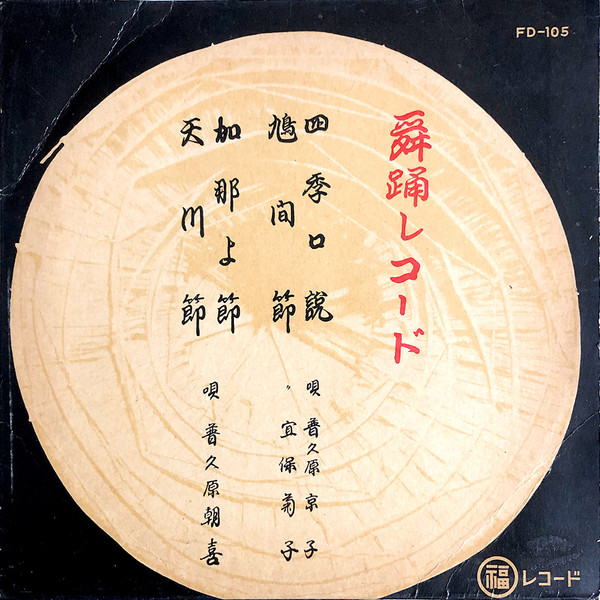 FD-105
舞踊レコード
四季口説
鳩間節
加那よ節
天川節
唄 普久原京子
〃 宜保菊子
唄 普久原朝喜
福 レコード